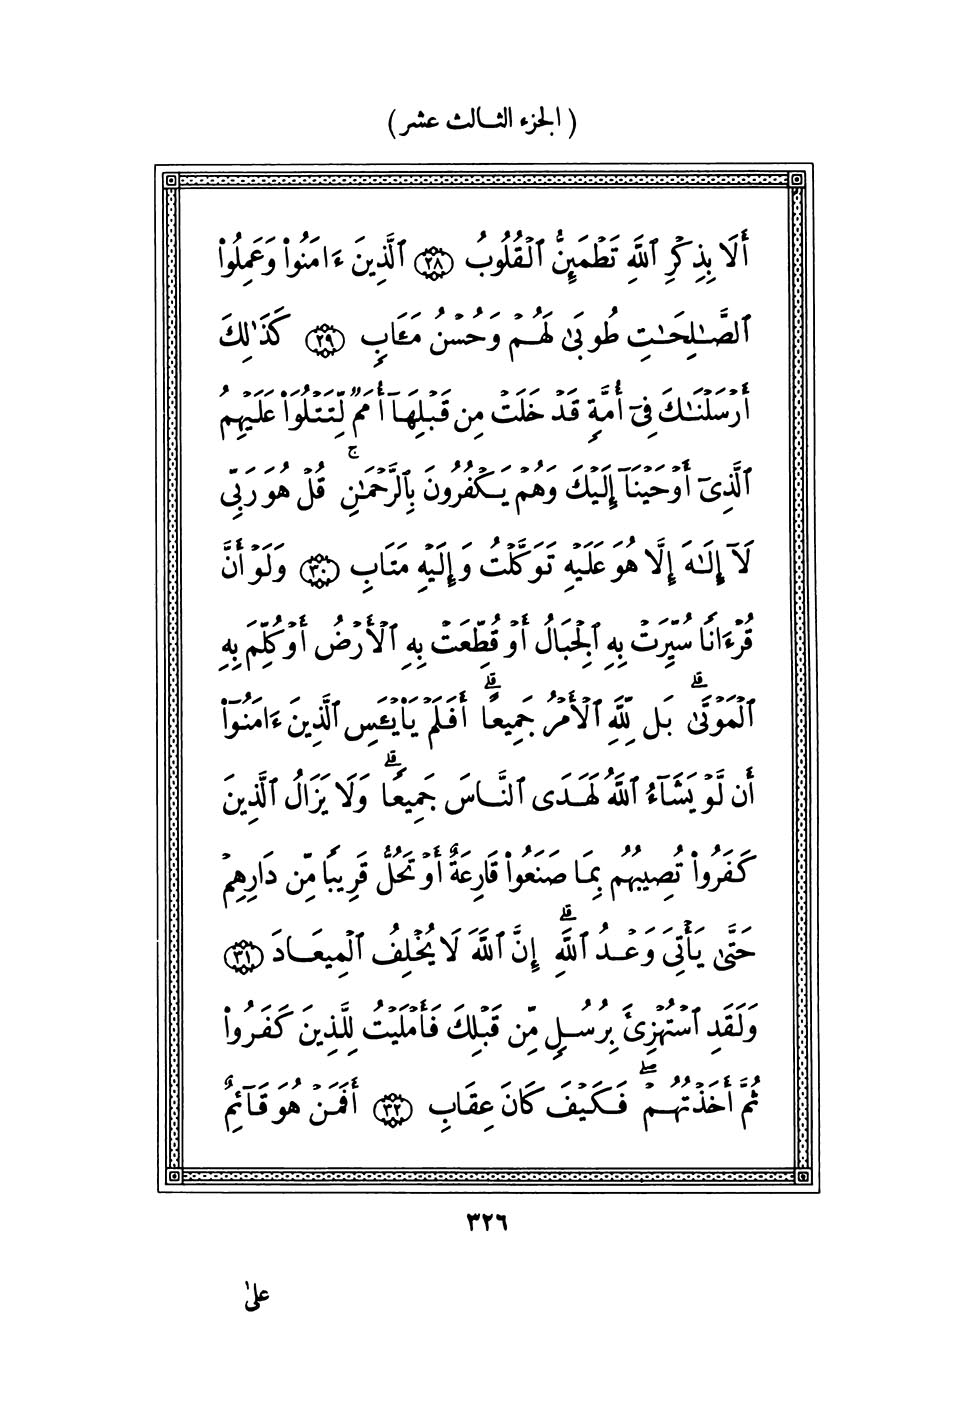 ( الجزء الثالث عشر )
أَلَا بِذِكْرِ ٱللَّهِ تَطْمَئِنُّ ٱلْقُلُوبُ ٢٨ ٱلَّذِينَ ءَامَنُوا۟ وَعَمِلُوا۟
ٱلصَّٰلِحَٰتِ طُوبَىٰ لَهُمْ وَحُسْنُ مَـَٔابٍ ٢٩ كَذَٰلِكَ
أَرْسَلْنَٰكَ فِىٓ أُمَّةٍ قَدْ خَلَتْ مِن قَبْلِهَآ أُمَمٌ لِّتَتْلُوَا۟ عَلَيْهِمُ
ٱلَّذِىٓ أَوْحَيْنَآ إِلَيْكَ وَهُمْ يَكْفُرُونَ بِٱلرَّحْمَٰنِ ۚ قُلْ هُوَ رَبِّى
لَآ إِلَٰهَ إِلَّا هُوَ عَلَيْهِ تَوَكَّلْتُ وَإِلَيْهِ مَتَابِ ٣٠ وَلَوْ أَنَّ
قُرْءَانًا سُيِّرَتْ بِهِ ٱلْجِبَالُ أَوْ قُطِّعَتْ بِهِ ٱلْأَرْضُ أَوْ كُلِّمَ بِهِ
ٱلْمَوْتَىٰ ۗ بَل لِّلَّهِ ٱلْأَمْرُ جَمِيعًا ۗ أَفَلَمْ يَا۟يْـَٔسِ ٱلَّذِينَ ءَامَنُوٓا۟
أَن لَّوْ يَشَآءُ ٱللَّهُ لَهَدَى ٱلنَّاسَ جَمِيعًا ۗ وَلَا يَزَالُ ٱلَّذِينَ
كَفَرُوا۟ تُصِيبُهُم بِمَا صَنَعُوا۟ قَارِعَةٌ أَوْ تَحُلُّ قَرِيبًا مِّن دَارِهِمْ
حَتَّىٰ يَأْتِىَ وَعْدُ ٱللَّهِ ۗ إِنَّ ٱللَّهَ لَا يُخْلِفُ ٱلْمِيعَادَ ٣١
وَلَقَدِ ٱسْتُهْزِئَ بِرُسُلٍ مِّن قَبْلِكَ فَأَمْلَيْتُ لِلَّذِينَ كَفَرُوا۟
ثُمَّ أَخَذْتُهُمْ ۖ فَكَيْفَ كَانَ عِقَابِ ٣٢ أَفَمَنْ هُوَ قَآئِمٌ
٣٢٦
علىٰ